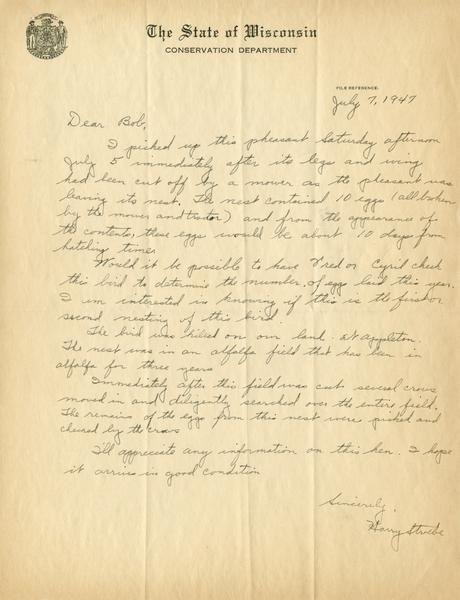 The State of Wisconsin
CONSERVATION DEPARTMENT
FILE REFERENCE:
July 7, 1947
Dear Bob,
I picked up this pheasant Saturday afternoon
July 5 immediately after its legs and wing
had been cut off by a mower as the pleasant was
leaving its nest. The nest contained 10 eggs (all broken
by the mower and tractor) and from the appearance of
the contents, these eggs would be about 10 days from
hatching time.
Would it be possible to have Fred or Cyril check
this bird to determine the number of eggs laid this year.
I am interested in knowing if this is the first or
second nesting of this bird.
The bird was killed on our land at Appleton.
The nest was in an alfalfa field that has been in
alfalfa for three years
Immediately after this field was cut several crows
moved in and diligently searched over the entire field.
The remains of the eggs from this nest were picked and
cleaned by the crows
I'll appreciate any information on this hen. I hope
it arrives in good condition
Sincerely,
Harry Stroebe